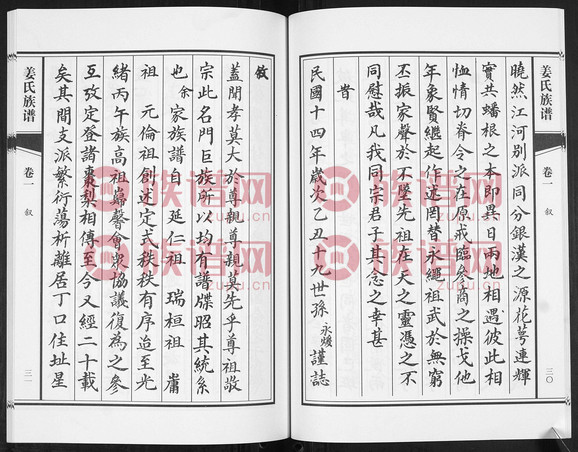 姜氏族谱
卷一
叙
三〇
曉然江河別派同分銀漢之源花萼連輝
實共蟠根之本即異日兩地相遇彼此相
恤情切脊令之在原戒臨參商之操戈他
年象賢繼起作述罔替永繩祖武於無窮
丕振家聲於不墜先祖在天之靈憑之不
同慰哉凡我同宗君子其念之幸甚
旹
民國十四年歲次乙丑十九世孫 永煖 謹誌
敘
蓋聞孝莫大於尊親尊親莫先乎尊祖敬
宗此名門巨族所以均有譜牒昭其統系
也余家族譜自 延仁祖 瑞桓祖 庸
祖 元倫祖創述定式秩秩有序迨至光
緒丙午族高祖 馨會衆協議復為之參
互攷定登諸棗梨相傳至今又經二十載
矣其間支派繁衍蕩析離居丁口住址星
姜氏族谱
卷一
叙
三一
族谱网
zupu.cn
族谱网
zupu.cn
族谱网
zupu.cn
族谱网
zupu.cn